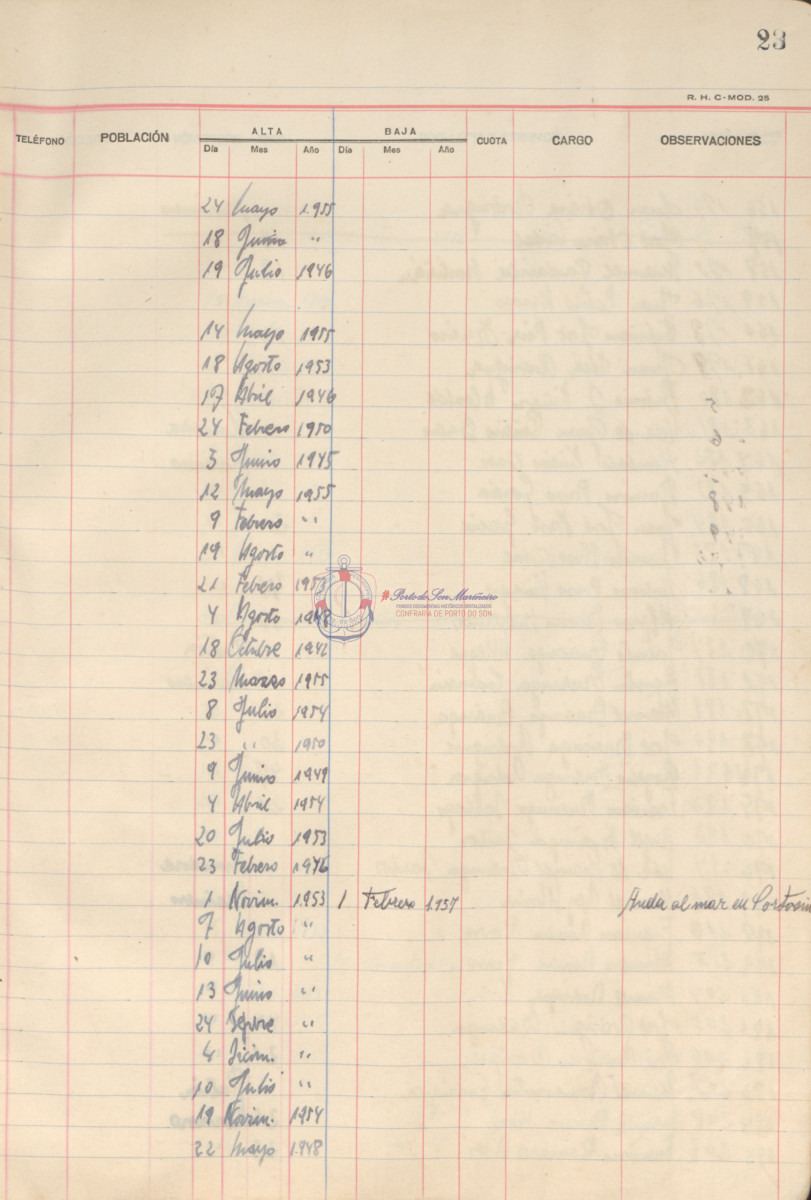 23
R. H. C-MOD. 25
TELÉFONO POBLACIÓN ALTA BAJA CUOTA CARGO OBSERVACIONES
Día Mes Año Día Mes Año
24 Mayo 1.955
18 Junio "
19 Julio 1946
14 Mayo 1955
18 Agosto 1953
17 Abril 1946
24 Febrero 1950
3 Junio 1945
12 Mayo 1955
9 Febrero "
19 Agosto "
21 Febrero 1953
4 Agosto 1948
Porto do Son Mariñeiro
FONDOS DOCUMENTAIS HISTÓRICOS DIXITALIZADOS
CONFRARÍA DE PORTO DO SON
18 Octubre 1942
23 Marzo 1955
8 Julio 1954
23 " 1950
9 Junio 1949
4 Abril 1954
20 Julio 1953
23 Febrero 1946
1 Novim. 1.953 1 Febrero 1.957 Anda al mar en Portosin
7 Agosto "
10 Julio "
13 Junio "
24 Sepbre "
4 Dicim. "
10 Julio "
19 Novim. 1954
22 Mayo 1.948